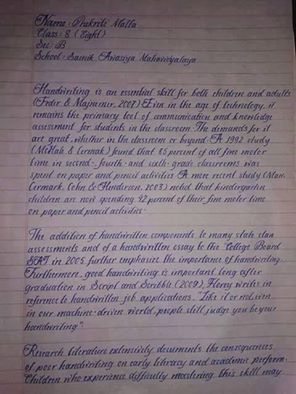 Name: Prakriti Malla
Class: 8 (Eight)
Sec: B
School: Sainik Awasiya Mahavidyalaya
Handwriting is an essential skill for both children and adults
(Feder & Majnemer, 2007). Even in the age of technology, it
remains the primary tool of communication and knowledge
assessment for students in the classroom. The demands for it
are great, whether in the classroom or beyond. A 1992 study
(McHale & Cermak) found that 85 percent of all fine motor
time in second- fourth- and sixth-grade classrooms was
spent on paper and pencil activities. A more recent study (Marr,
Cermark, Cohn & Henderson, 2003) noted that kindergarten
children are now spending 42 percent of their fine motor time
on paper and pencil activities.
The addition of handwritten components to many state
assessments and of a handwritten essay to the College Board
SAT in 2005 further emphasizes the importance of handwriting.
Furthermore, good handwriting is important long after
graduation in Script and Scribble (2009), Florey writes in
reference to handwritten job applications, "Like it or not, even
in our machine-driven world, people still judge you by your
handwriting."
Research literature extensively documents the consequences
of poor handwriting on early literacy and academic perform
Children who experience difficulty mastering this skill may